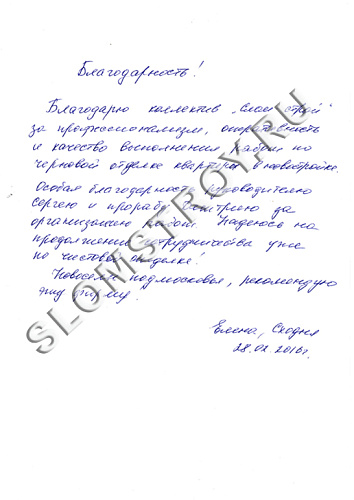 Благодарность!
Благодарю коллектив "Слом строй"
за профессионализм, оперативность
и качество выполнения работ по
черновой отделке квартиры в новостройке.
Особая благодарность руководителю
Сергею и прорабу Дмитрию за
организацию работ. Надеюсь на
продолжение сотрудничества уже
по чистовой отделке!
Новоселам подмосковья, рекомендую
эту фирму.
Елена, Сходня
28.02.2016г.
SLOMSTROY.RU